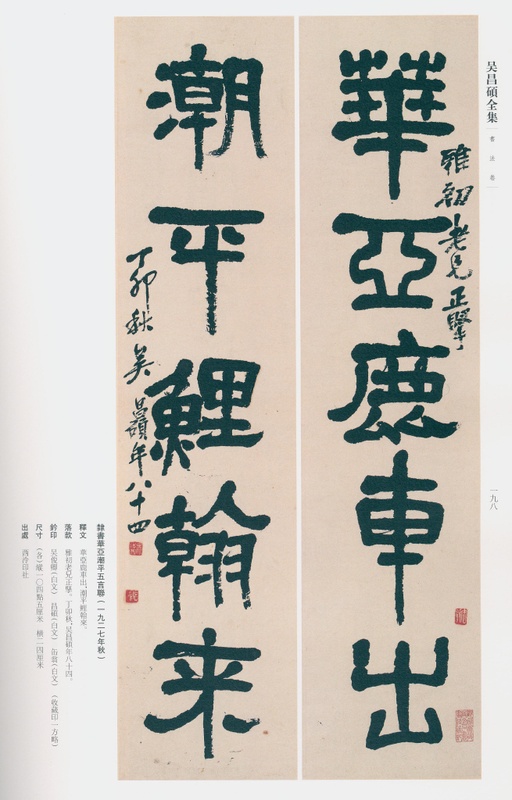 吴昌碩全集
書法卷
一九八
華亞鹿車出
雅初老兄正擘
潮平鯉翰来
丁卯秋吴昌碩年八十四
隸書華亞潮平五言聯（一九二七年秋）
釋文　華亞鹿車出，潮平鯉翰來。
落款　雅初老兄正擘。丁卯秋，吴昌碩年八十四。
鈐印　吴俊卿（白文）　昌碩（白文）　缶翁（白文）　（收藏印一方略）
尺寸　（各）縱一〇四點五厘米　橫二四厘米
出處　西泠印社